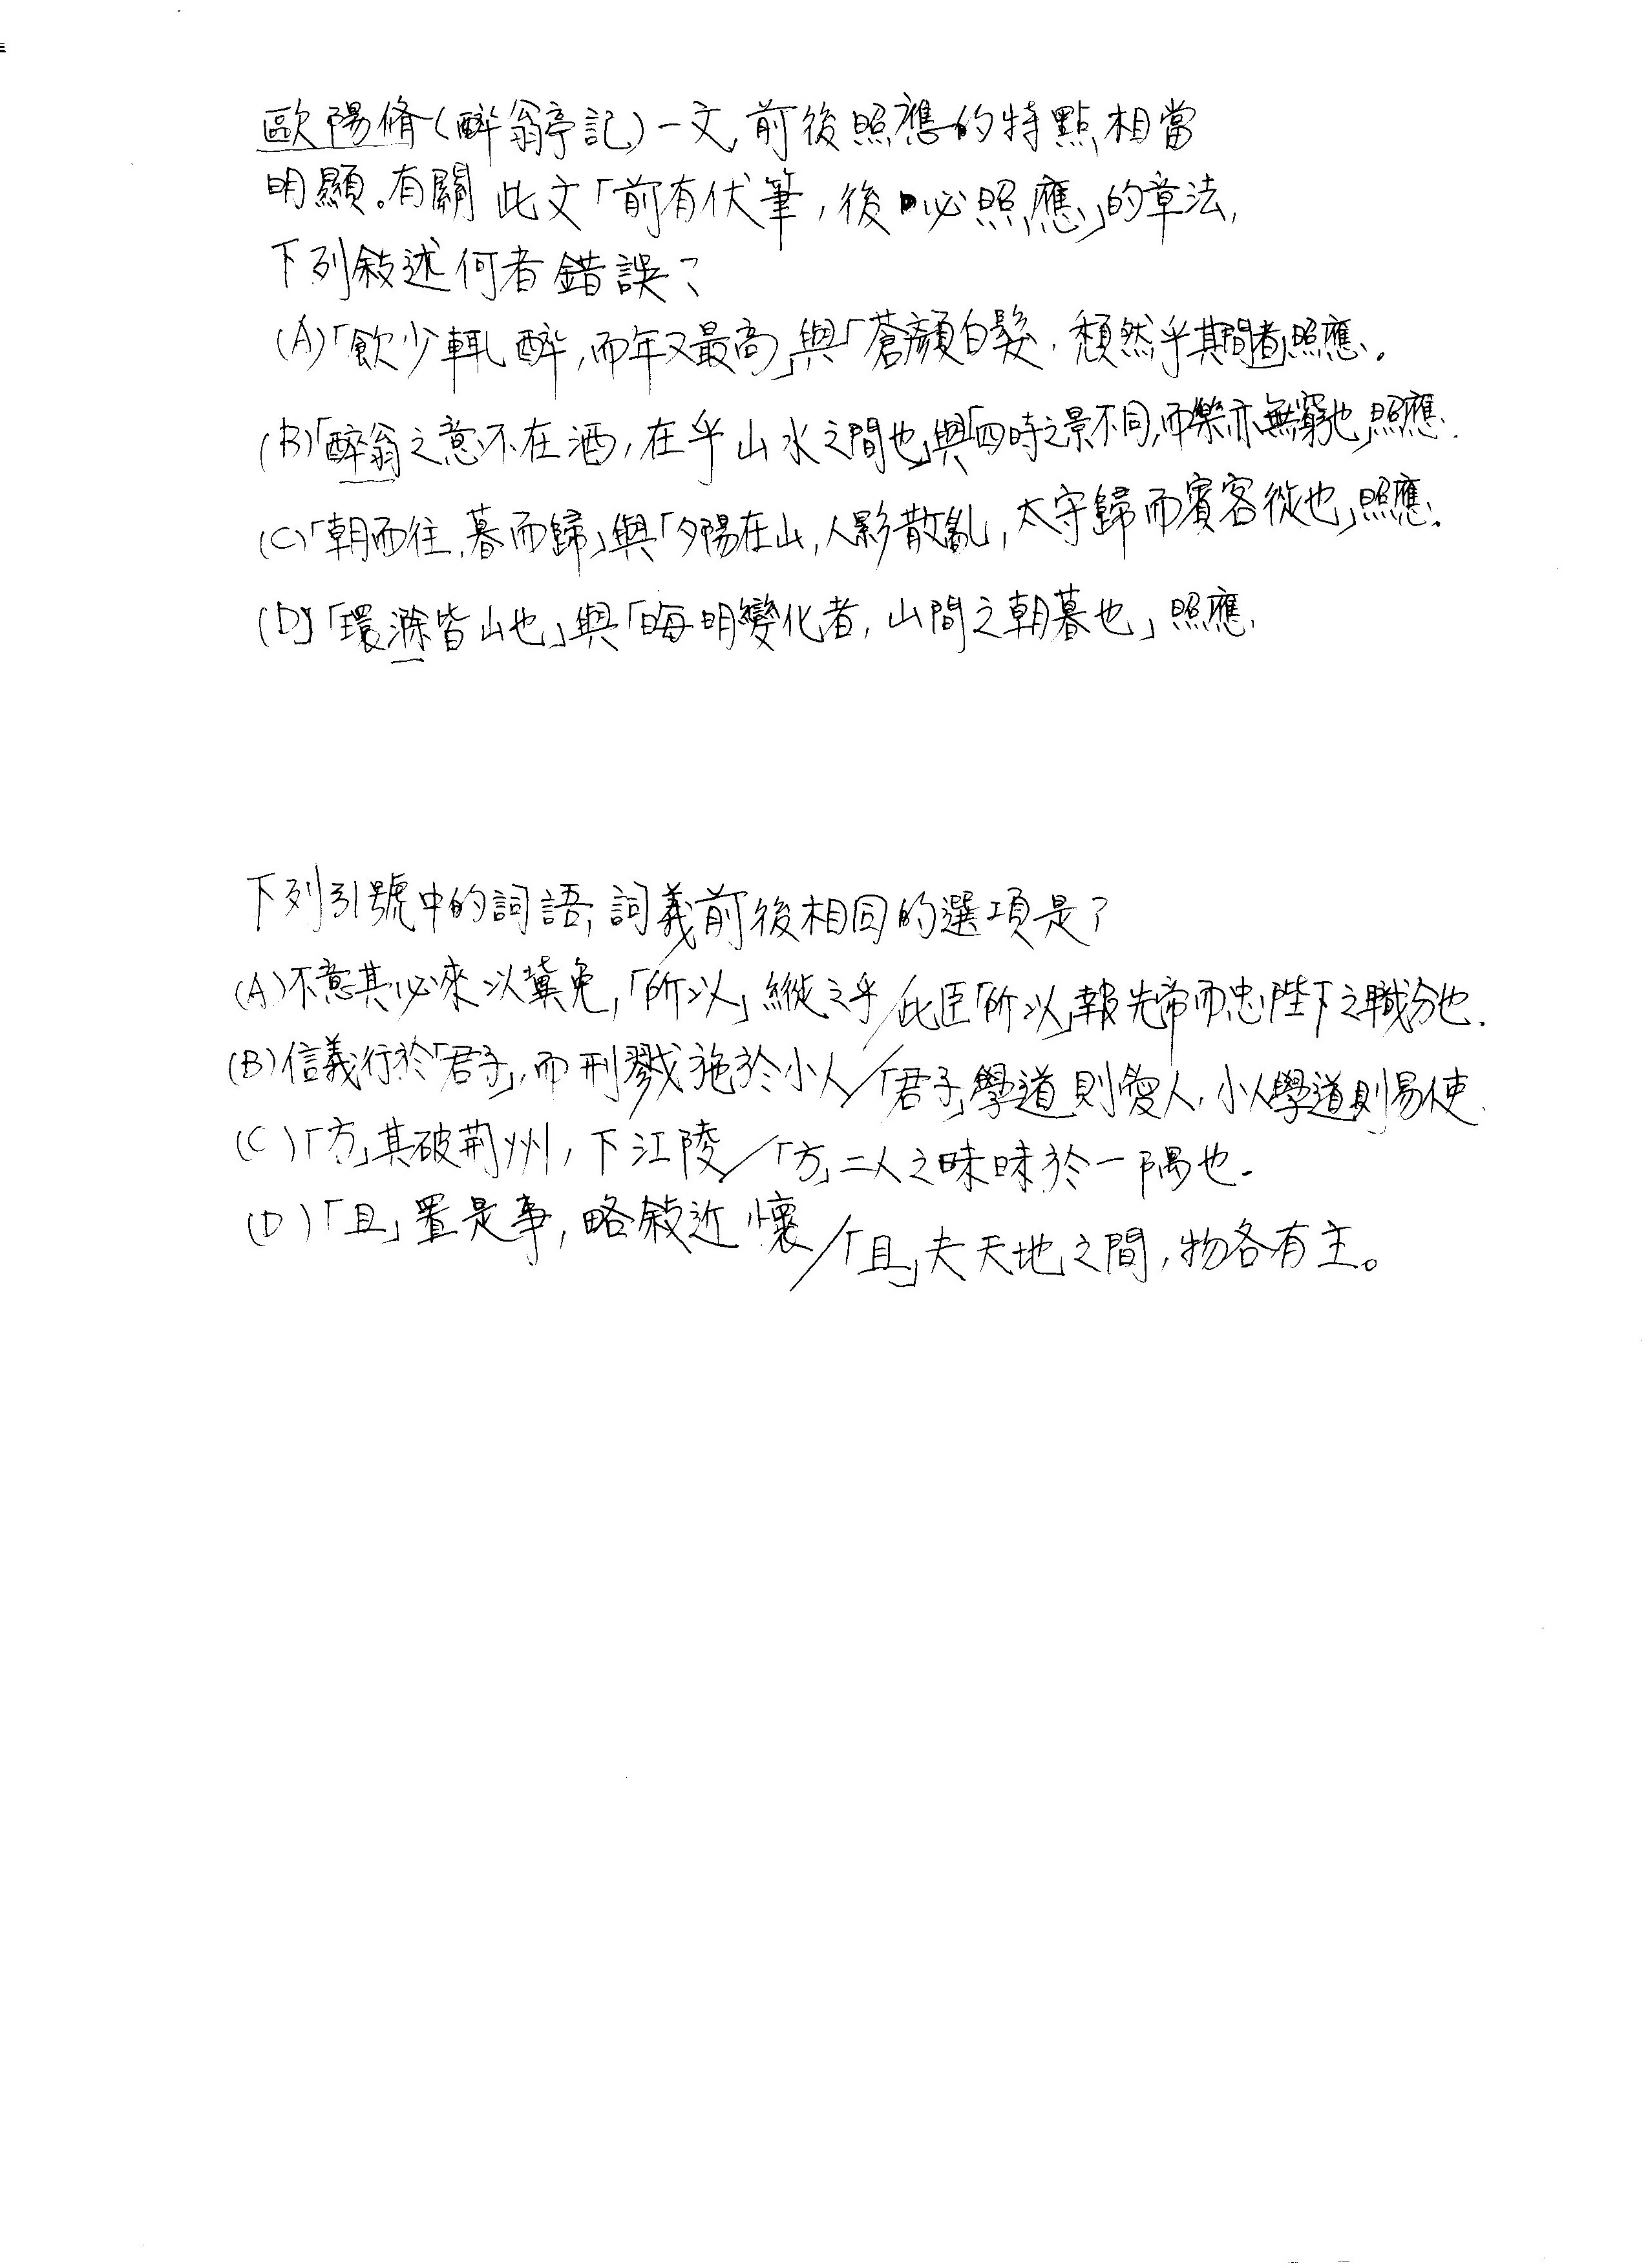 歐陽脩(醉翁亭記)一文,前後照應的特點相當
明顯。有關此文「前有伏筆,後必照應」的章法,
下列敍述何者錯誤?
(A)「飲少輒醉,而年又最高」與「蒼顏白髮,頹然乎其間者」照應。
(B)「醉翁之意不在酒,在乎山水之間也」與「四時之景不同,而樂亦無窮也」照應.
(C)「朝而往,暮而歸」與「夕陽在山,人影散亂,太守歸而賓客從也」照應.
(D)「環滁皆山也」與「晦明變化者,山間之朝暮也」照應.
下列引號中的詞語,詞義前後相同的選項是?
(A)不意其必來以冀免,「所以」縱之乎/此臣「所以」報先帝而忠陛下之職分也.
(B)信義行於「君子」,而刑戮施於小人/「君子」學道則愛人,小人學道則易使.
(C)「方」其破荆州,下江陵/「方」二人之昧昧於一隅也.
(D)「且」置是事,略敍近懷/「且」夫天地之間,物各有主。